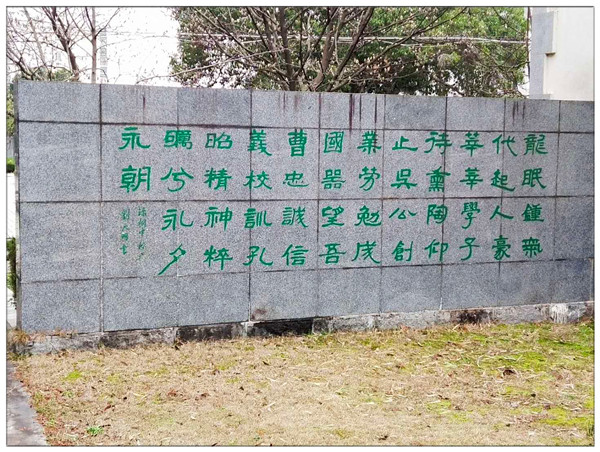 龍眠鍾氣
代起人豪
莘莘學子
待薰陶仰
止吳公創
業勞勉成
國器望吾
曹忠誠信
義校訓孔
昭精神粹
礪兮永夕
永朝